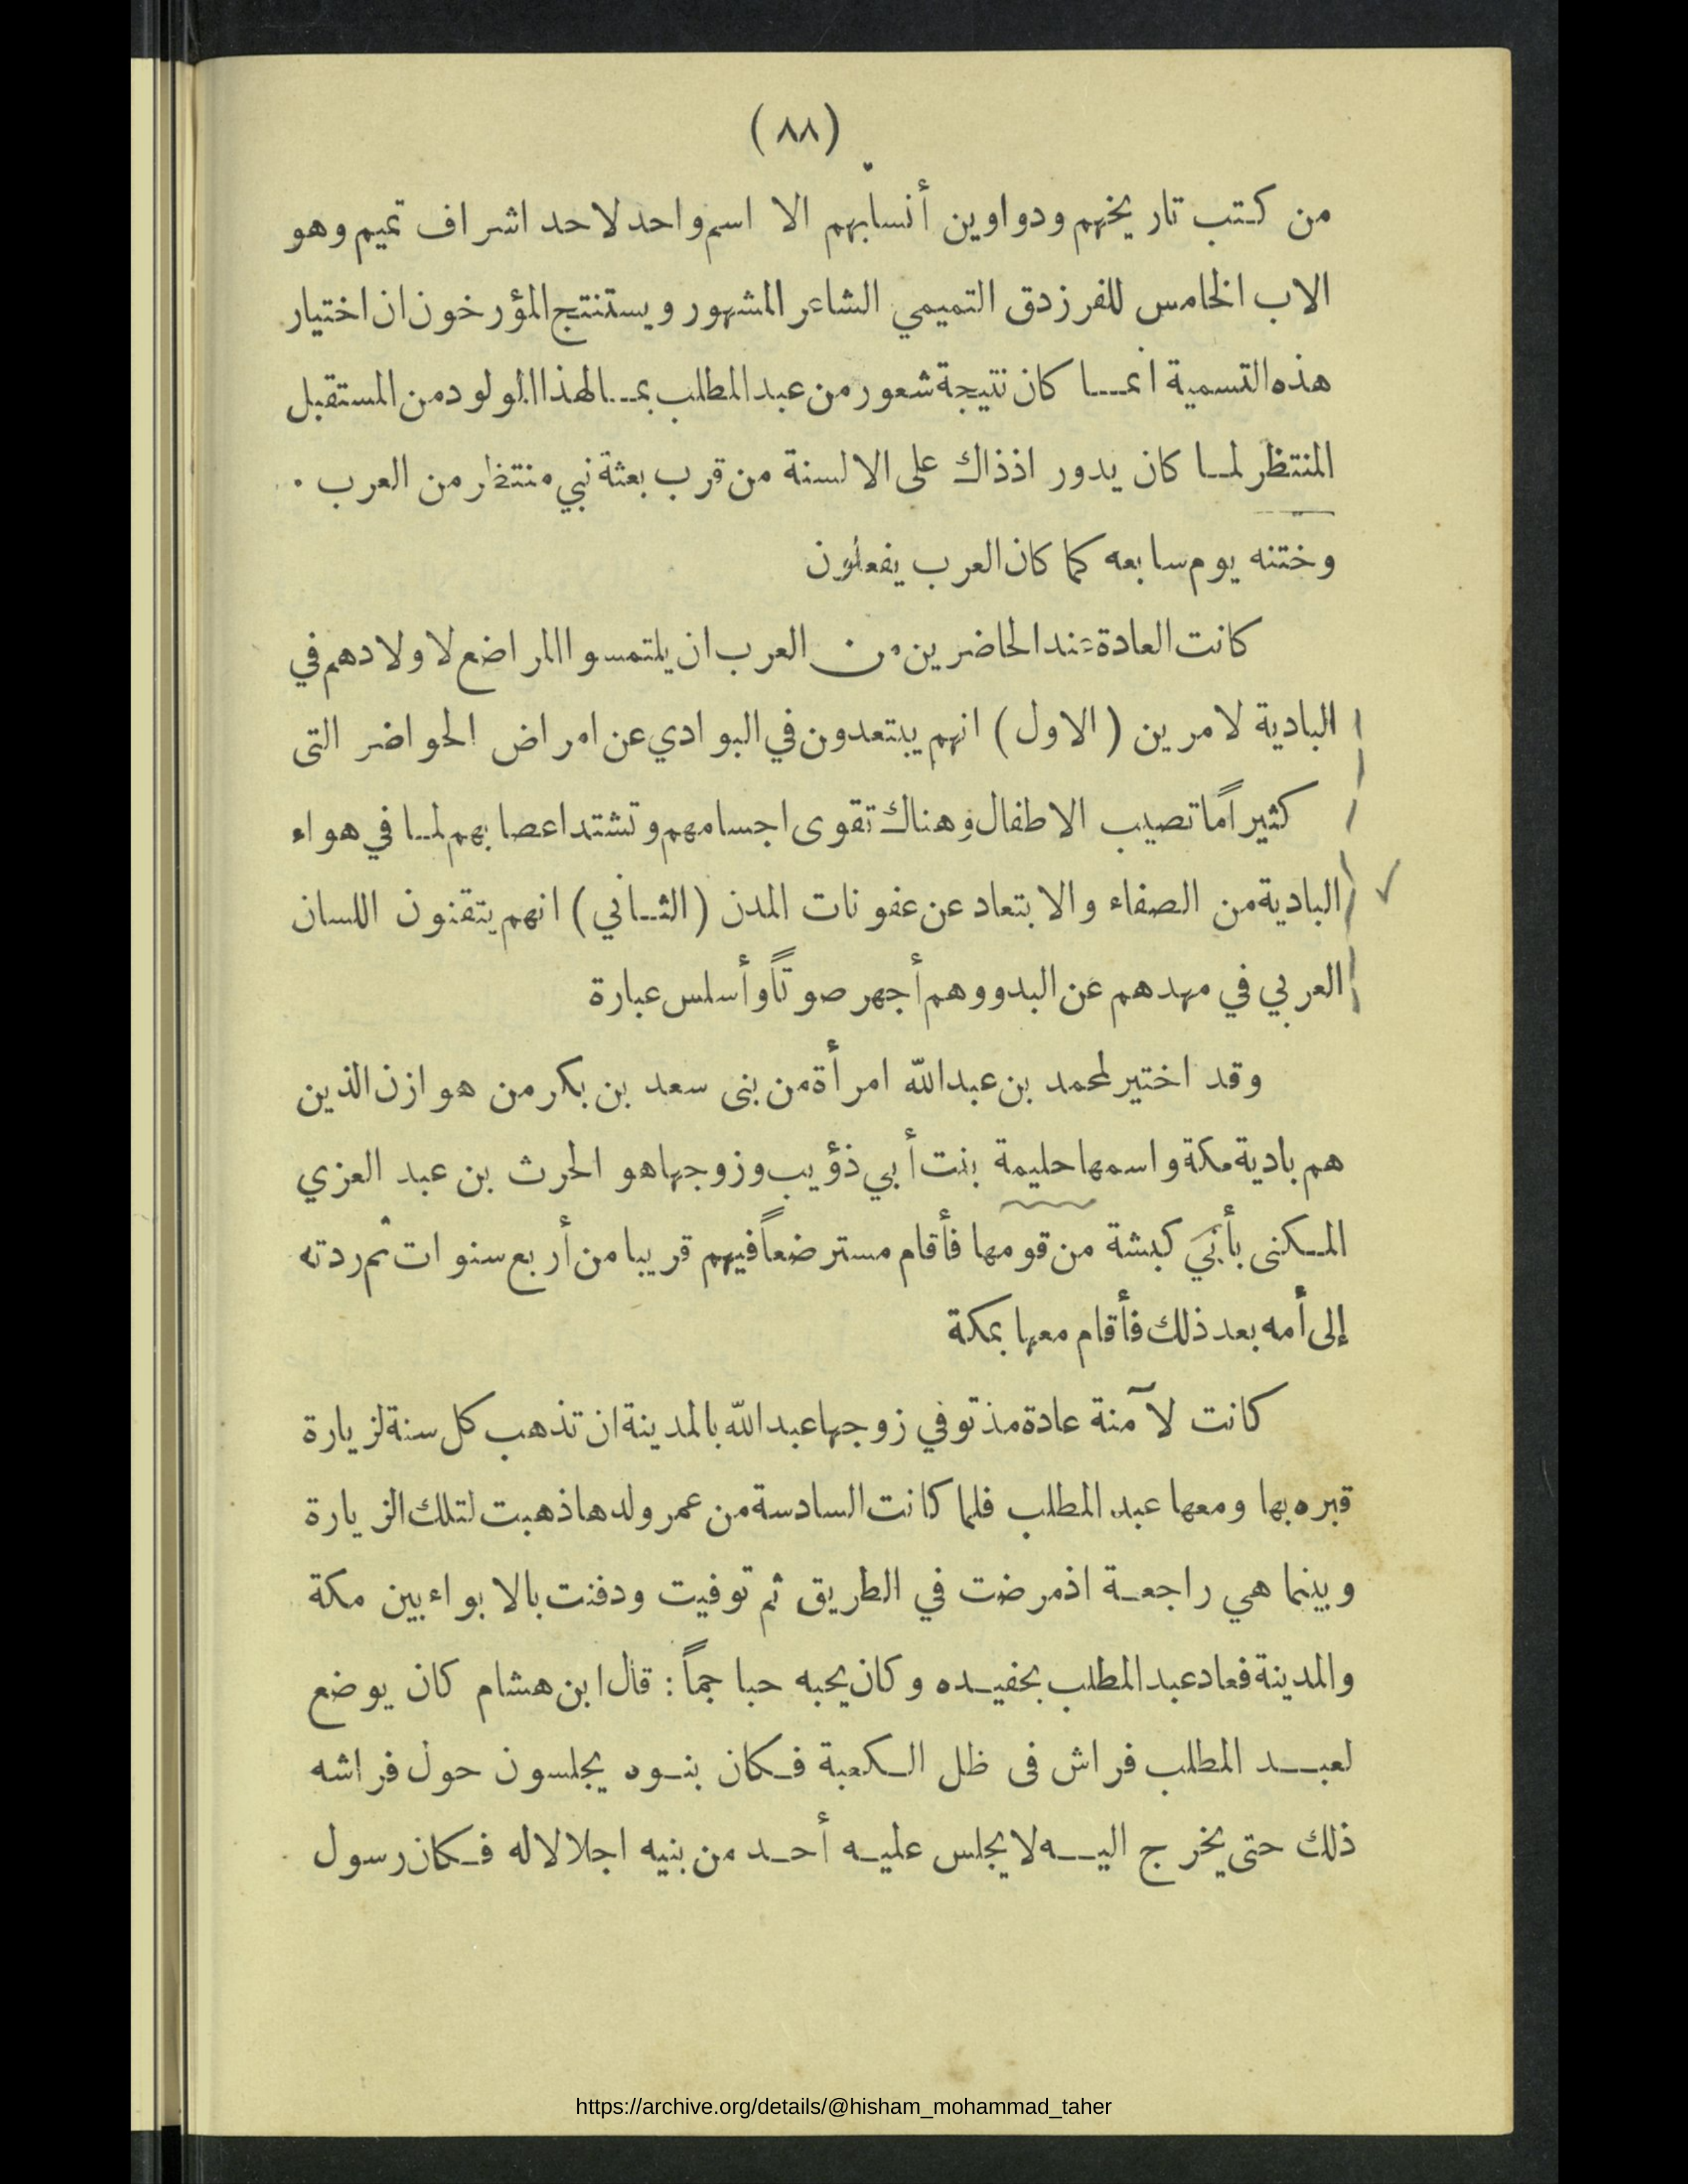 (٨٨)
من كتب تاريخهم ودواوين أنسابهم الا اسم واحد لاحد اشراف تميم وهو
الاب الخامس للفرزدق التميمي الشاعر المشهور ويستنتج المؤرخون ان اختيار
هذه التسمية انما كان نتيجة شعور من عبد المطلب بما لهذا المولود من المستقبل
المنتظر لما كان يدور اذذاك على الالسنة من قرب بعثة نبي منتظر من العرب .
وختنه يوم سابعه كما كان العرب يفعلون
كانت العادة عند الحاضرين من العرب ان يلتمسوا المراضع لاولادهم في
البادية لامرين (الاول) انهم يبتعدون في البوادي عن امراض الحواضر التى
كثيراً ما تصيب الاطفال وهناك تقوى اجسامهم وتشتد اعصابهم لما في هواء
البادية من الصفاء والابتعاد عن عفونات المدن (الثاني) انهم يتقنون اللسان
العربي في مهدهم عن البدو وهم أجهر صوتاً وأسلس عبارة
وقد اختير لمحمد بن عبد الله امرأة من بنى سعد بن بكر من هوازن الذين
هم بادية مكة واسمها حليمة بنت أبي ذؤيب وزوجها هو الحرث بن عبد العزي
المكنى بأبي كبشة من قومها فأقام مسترضعاً فيهم قريبا من أربع سنوات ثم ردته
إلى أمه بعد ذلك فأقام معها بمكة
كانت لآمنة عادة مذ توفي زوجها عبد الله بالمدينة ان تذهب كل سنة لزيارة
قبره بها ومعها عبد المطلب فلما كانت السادسة من عمر ولدها ذهبت لتلك الزيارة
وبينما هي راجعة اذ مرضت في الطريق ثم توفيت ودفنت بالابواء بين مكة
والمدينة فعاد عبد المطلب بحفيده وكان يحبه حبا جماً : قال ابن هشام كان يوضع
لعبد المطلب فراش فى ظل الكعبة فكان بنوه يجلسون حول فراشه
ذلك حتى يخرج اليه لا يجلس عليه أحد من بنيه اجلالا له فكان رسول
https://archive.org/details/@hisham_mohammad_taher